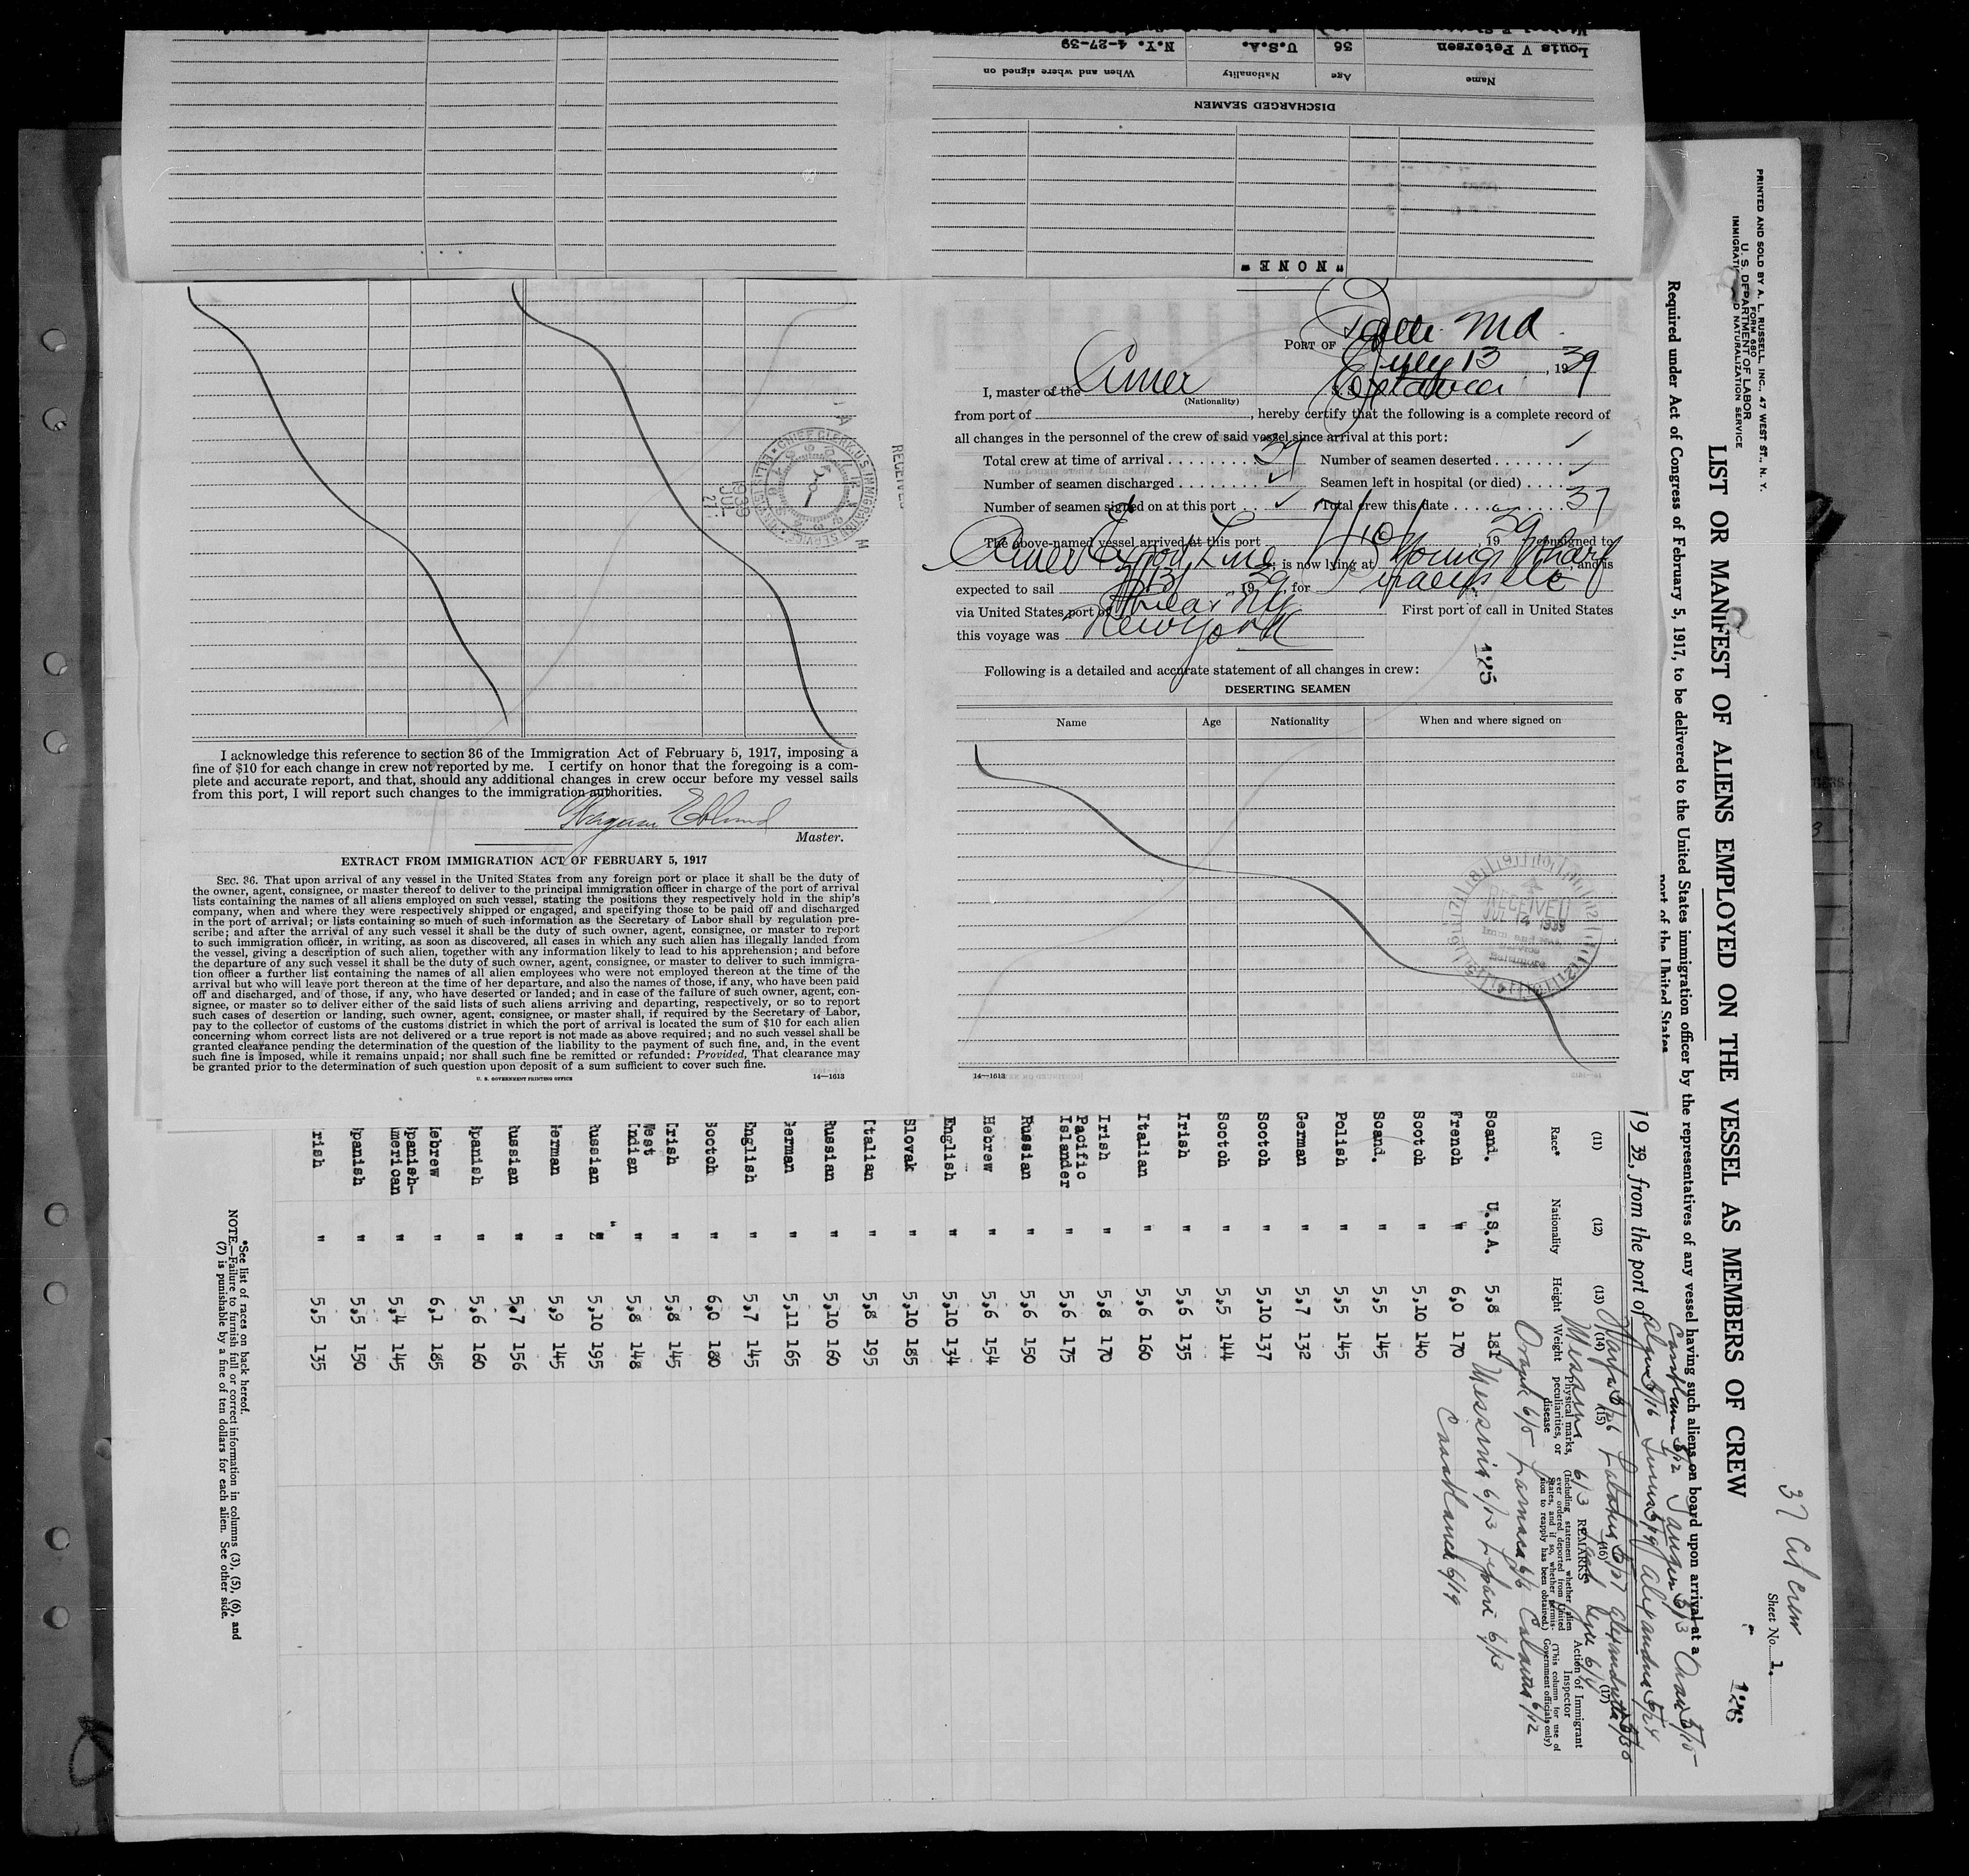 Louis V Petersen 56 U.S.A. N.Y. 4-27-39
Name Age Nationality When and where signed on
DISCHARGED SEAMEN
"NONE"
PORT OF Balto Md
July 13, 1939
I, master of the Amer S. S. Exetavia
(Nationality)
from port of , hereby certify that the following is a complete record of
all changes in the personnel of the crew of said vessel since arrival at this port:
Total crew at time of arrival 37 Number of seamen deserted
Number of seamen discharged Seamen left in hospital (or died)
Number of seamen signed on at this port Total crew this date 37
The above-named vessel arrived at this port 7/10, 1939, consigned to
Amer Export Line, is now lying at Wharf, and is
expected to sail 7/13, 1939, for
via United States port of First port of call in United States
this voyage was New York
Following is a detailed and accurate statement of all changes in crew:
125
DESERTING SEAMEN
Name Age Nationality When and where signed on
RECEIVED
JUL 14 1939
Baltimore
14—1613
RECEIVED
CHIEF CLERK U.S. IMMIGRATION SERVICE
1939 JUL 21
I acknowledge this reference to section 36 of the Immigration Act of February 5, 1917, imposing a
fine of $10 for each change in crew not reported by me. I certify on honor that the foregoing is a com-
plete and accurate report, and that, should any additional changes in crew occur before my vessel sails
from this port, I will report such changes to the immigration authorities.
Master.
EXTRACT FROM IMMIGRATION ACT OF FEBRUARY 5, 1917
SEC. 36. That upon arrival of any vessel in the United States from any foreign port or place it shall be the duty of
the owner, agent, consignee, or master thereof to deliver to the principal immigration officer in charge of the port of arrival
lists containing the names of all aliens employed on such vessel, stating the positions they respectively hold in the ship's
company, when and where they were respectively shipped or engaged, and specifying those to be paid off and discharged
in the port of arrival; or lists containing so much of such information as the Secretary of Labor shall by regulation pre-
scribe; and after the arrival of any such vessel it shall be the duty of such owner, agent, consignee, or master to report
to such immigration officer, in writing, as soon as discovered, all cases in which any such alien has illegally landed from
the vessel, giving a description of such alien, together with any information likely to lead to his apprehension; and before
the departure of any such vessel it shall be the duty of such owner, agent, consignee, or master to deliver to such immigra-
tion officer a further list containing the names of all alien employees who were not employed thereon at the time of the
arrival but who will leave port thereon at the time of her departure, and also the names of those, if any, who have been paid
off and discharged, and of those, if any, who have deserted or landed; and in case of the failure of such owner, agent, con-
signee, or master so to deliver either of the said lists of such aliens arriving and departing, respectively, or so to report
such cases of desertion or landing, such owner, agent, consignee, or master shall, if required by the Secretary of Labor,
pay to the collector of customs of the customs district in which the port of arrival is located the sum of $10 for each alien
concerning whom correct lists are not delivered or a true report is not made as above required; and no such vessel shall be
granted clearance pending the determination of the question of the liability to the payment of such fine, and, in the event
such fine is imposed, while it remains unpaid; nor shall such fine be remitted or refunded: Provided, That clearance may
be granted prior to the determination of such question upon deposit of a sum sufficient to cover such fine.
U. S. GOVERNMENT PRINTING OFFICE 14—1613
PRINTED AND SOLD BY A. L. RUSSELL, INC., 47 WEST ST., N. Y.
FORM 680
U. S. DEPARTMENT OF LABOR
IMMIGRATION AND NATURALIZATION SERVICE
37 Crew
Sheet No. 1.
126
LIST OR MANIFEST OF ALIENS EMPLOYED ON THE VESSEL AS MEMBERS OF CREW
Required under Act of Congress of February 5, 1917, to be delivered to the United States immigration officer by the representatives of any vessel having such aliens on board upon arrival at a
port of the United States
Casablanca 5/12 Tangier 5/13 Oran 5/15
1939, from the port of Algiers 5/16 Tunis 5/19 Alexandria 5/24
Haifa 5/26 Latakia 5/27 Alexandretta 5/30
Messina 6/13
Larnaca 6/6 Calamata 6/12
Messina 6/13 Lipari 6/13
Casablanca 6/19
(11) (12) (13) (14) (15) (16) (17)
Race* Nationality Height Weight Physical marks, peculiarities, or disease REMARKS (Including statement whether alien ever ordered deported from United States, and if so, whether permission to reapply has been obtained) Action of Immigrant Inspector (This column for use of Government officials only)
Scand. U.S.A. 5,8 181
French " 6,0 170
Scotch " 5,10 140
Scand. " 5,5 145
Polish " 5,5 145
German " 5,7 132
Scotch " 5,10 137
Scotch " 5,5 144
Irish " 5,6 135
Italian " 5,6 160
Irish " 5,8 170
Pacific Islander " 5,6 175
Russian " 5,6 150
Hebrew " 5,6 154
English " 5,10 134
Slovak " 5,10 185
Italian " 5,8 195
Russian " 5,10 160
German " 5,11 165
English " 5,7 145
Scotch " 6,0 180
Irish " 5,8 145
West Indian " 5,8 148
Russian " 5,10 195
German " 5,9 145
Russian " 5,7 156
Spanish " 5,6 160
Hebrew " 6,1 185
Spanish-American " 5,4 145
Spanish " 5,5 150
Irish " 5,5 135
*See list of races on back hereof.
NOTE.—Failure to furnish full or correct information in columns (3), (5), (6), and
(7) is punishable by a fine of ten dollars for each alien. See other side.